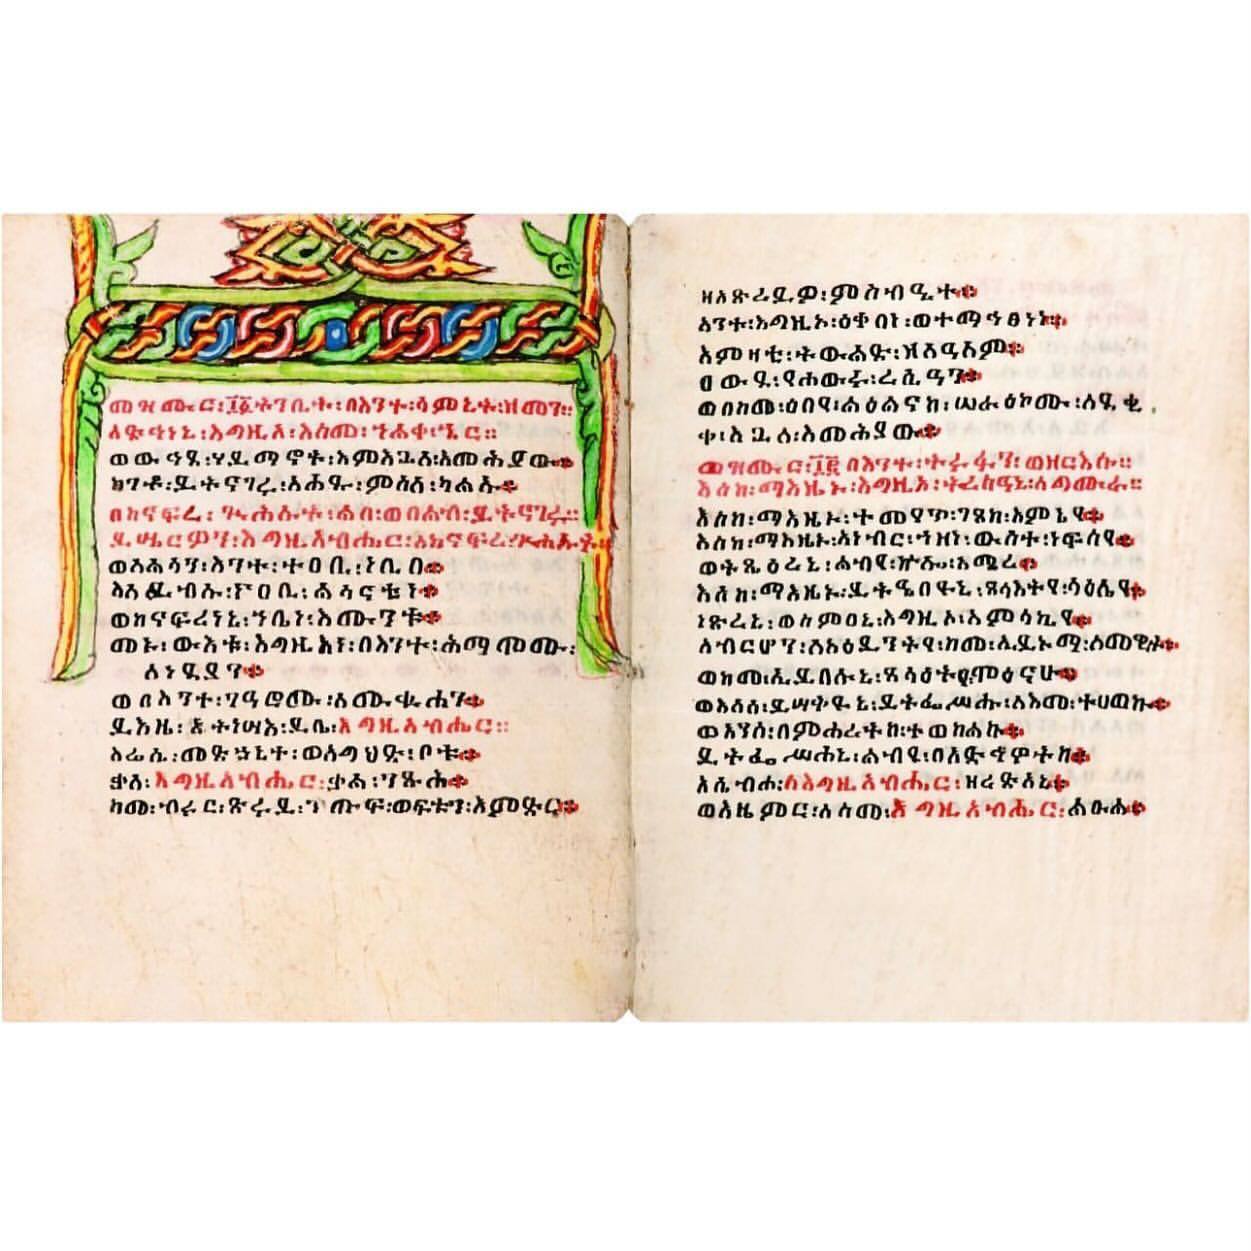 መዝሙር፡፲፩ትንቢት፡በእንተ፡ሳምኒት፡ዘመን።
አድኅነኒ፡እግዚኦ፡እስመ፡ኀልቀ፡ኄር።
ወውኅደ፡ሃይማኖት፡እምእጓለ፡እመሕያው።
ከንቶ፡ይትናገሩ፡አሐዱ፡ምስለ፡ካልኡ።
በከናፍረ፡ጕሕሉት፡ልብ፡ወበልብ፡ይትናገሩ።
ይሤርዎን፡እግዚአብሔር፡ለከናፍረ፡ጕሕሉት።
ወለልሳን፡እንተ፡ተዐቢ፡ነቢበ።
እለ፡ይብሉ፡ናዐቢ፡ልሳናቲነ።
ወከናፍሪነኒ፡ኀቤነ፡እሙንቱ።
መኑ፡ውእቱ፡እግዚእነ፡በእንተ፡ሕማሞሙ፡
ለነዳያን።
ወበእንተ፡ገዓሮሙ፡ለሙቁሓን።
ይእዜ፡እትነሣእ፡ይቤ፡እግዚአብሔር።
እሬሲ፡መድኃኒተ፡ወአግህድ፡ቦቱ።
ቃለ፡እግዚአብሔር፡ቃል፡ንጹሕ።
ከመ፡ብሩር፡ጽሩይ፡ንጡፍ፡ወፍቱን፡እምድር።
ዘአጽረይዎ፡ምስብዒተ።
አንተ፡እግዚኦ፡ዕቀበነ፡ወተማኅፀነነ።
እምዛቲ፡ትውልድ፡እስከ፡ለዓለም።
ዐውደ፡የሐውሩ፡ረሲዓን።
ወበከመ፡ዕበየ፡ልዕልናከ፡ሠራዕኮሙ፡ለደቂ
ቀ፡እጓለ፡እመሕያው።
መዝሙር፡፲፪በእንተ፡ተሩፋን፡ወዘርእሱ።
እስከ፡ማእዜኑ፡እግዚኦ፡ትረስዐኒ፡ለግሙራ።
እስከ፡ማእዜኑ፡ትመይጥ፡ገጸከ፡እምኔየ።
እስከ፡ማእዜኑ፡አነብር፡ኀዘነ፡ውስተ፡ነፍስየ።
ወትጼዕረኒ፡ልብየ፡ኵሎ፡አሚረ።
እስከ፡ማእዜኑ፡ይትዔበዩኒ፡ጸላእትየ፡ላዕሌየ።
ነጽረኒ፡ወስምዐኒ፡እግዚኦ፡አምላኪየ።
አብርሆን፡ለአዕይንትየ፡ከመ፡ኢይኑማ፡ለመዊት።
ወከመ፡ኢይበሉኒ፡ጸላዕትየ፡ሞዕናሁ።
ወእለሰ፡ይሣቅዩኒ፡ይትፌሥሑ፡ለእመ፡ተሀወኩ።
ወአንሰ፡በምሕረትከ፡ተወከልኩ።
ይትፌሥሐኒ፡ልብየ፡በአድኅኖትከ።
እሴብሖ፡ለእግዚአብሔር፡ዘረድአኒ።
ወእዜምር፡ለስመ፡እግዚአብሔር፡ልዑል።